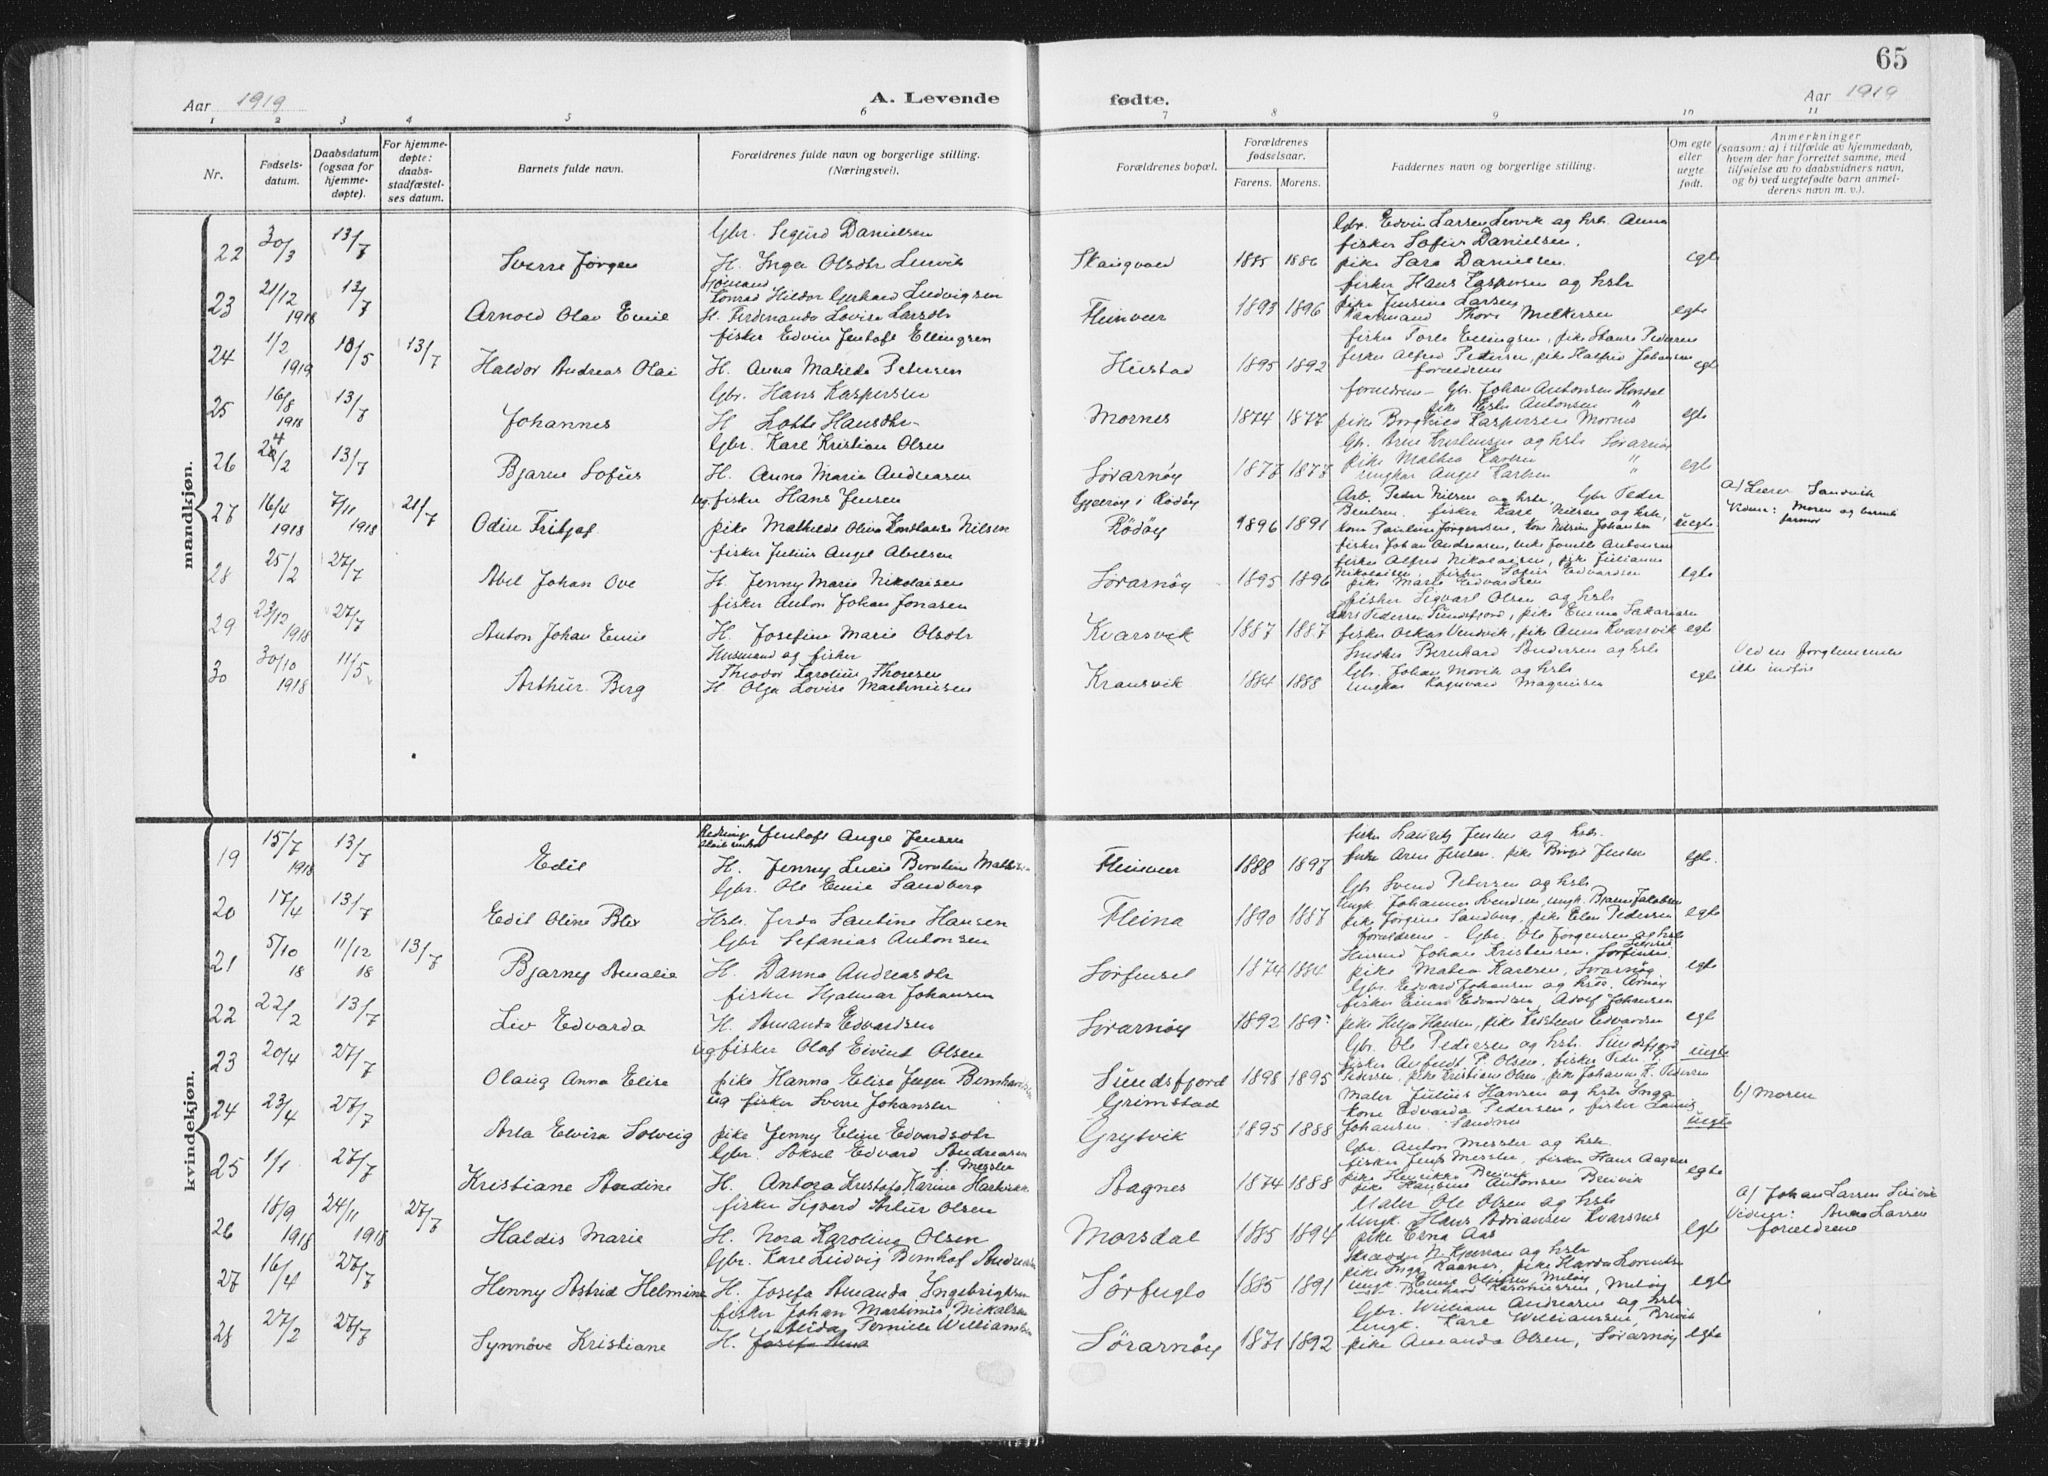 65
Aar 1919
A. Levende
fødte.
Aar 1919
1 2 3 4 5 6 7 8 9 10 11
Nr.
Fødsels-
datum.
Daabsdatum
(ogsaa for
hjemme-
døpte).
For hjemme-
døpte:
daabs-
stadfæstel-
ses datum.
Barnets fulde navn.
Forældrenes fulde navn og borgerlige stilling.
(Næringsvei).
Forældrenes bopæl.
Forældrenes
fødselsaar.
Farens. Morens.
Faddernes navn og borgerlige stilling.
Om egte
eller
uegte
født.
Anmerkninger
(saasom: a) i tilfælde av hjemmedaab,
hvem der har forrettet samme, med
tilføielse av to daabsvidners navn,
og b) ved uegtefødte barn anmel-
derens navn m. v.).
mandkjøn.
Gbr. Sigurd Danielsen
Gbr. Edvin Larsen Lervik og hstr. Anna
fisker Sofus Danielsen.
22 30/3 13/7 Sverre Jørgen H. Inga Olsdtr Lervik Skaugvold 1885 1886 pike Sara Danielsen egte
Konrad Hildor Gerhard Ludvigsen
fisker Hans Kaspersen og hstr
pike Jensine Larsen
23 21/12 1918 13/7 Arnold Olav Emil H. Ferdinanda Lovise Larsdtr Fleinvær 1893 1896 Thora Melkersen egte
fisker Edvin Jentoft Ellingsen
fisker Torle Ellingsen, pike Hansa Pedersen
fisker Alfred Pedersen, pike Halfrid Johansen
24 1/2 1919 18/5 13/7 Haldor Andreas Olai H. Anna Matilde Petersen Hustad 1895 1892 forældrene egte
Gbr. Hans Kaspersen
forældrene - Gbr. Johan Antonsen
pike Antonsen "
25 16/8 1918 13/7 Johannes H. Lotte Hansdtr. Mornes 1874 1877 pike Borghild Kaspersen Mornes egte
Gbr. Karl Kristian Olsen
Gbr. Arne Kristensen og hstr Sørarnøy
pike Mathea Karlsen "
26 24/2 13/7 Bjarne Sofus H. Anna Marie Andreasen Sørarnøy 1877 1877 ungkar Angel Karlsen " egte
ug. fisker Hans Jensen
Gjerøy i Rødøy
Arb. Peder Nilsen og hstr, Gbr Peder
Bentsen, fisker Karl Nilsen og hstr,
a) Lærer Sandvik
27 16/4 1918 7/11 1918 21/7 Odin Fritjof pike Mathilde Olive Konstanse Nilsen Rødøy 1896 1891 kone Pauline Jørgensen, kone Nilsine Johansen uegte
Vidner: Moren og barnets
farmor
fisker Johan Andreasen, enke Jonette Antonsen
fisker Julius Angel Abelsen
fisker Alfred Nikolaisen, pike Julianne
Nikolaisen, fisker Sofus Edvardsen
28 25/2 27/7 Abel Johan Ove H. Jenny Marie Nikolaisen Sørarnøy 1895 1896 pike Marie Edvardsen egte
fisker Anton Johan Jonasen
fisker Sigvart Olsen og hstr
Lars Pedersen Sundsfjord, pike Emma Sakariasen
29 23/12 1918 27/7 Anton Johan Emil H. Josefine Marie Olsdtr Kvarsvik 1887 1887 fisker Oskar Vensvik, pike Anna Kvarsvik egte
Husmand og fisker
Theodor Karolius Thoresen
Smeder Bernhard Andersen og hstr
Gbr. Johan Movik og hstr
Ved en forglemmelse
ikke indført
30 30/10 1918 11/5 Arthur Berg H. Olga Lovise Martinusen Kransvik 1884 1888 Ungkar Ragnvald Magnusen egte
kvindekjøn.
Jentoft Angel Jensen
fisker Lauritz Jensen og hstr.
19 15/7 1918 13/7 Edil H. Jenny Lucie Berntine Fleinvær 1888 1897 fisker Arne Jensen. pike Birgit Jensen egte.
Gbr. Ole Emil Sandberg
Gbr Svend Petersen og hstr
Ungk. Johannes Svendsen, ungk. Bjarne Jakobsen
20 17/4 13/7 Edil Oline Blix Hstr. Jerda Santine Hansen Fleina 1890 1887 pike Jørgine Sandberg, pike Elen Pedersen egte
Gbr Sefanias Antonsen
forældrene - Gbr. Ole Jørgensen og hstr
Johan Kristensen Sørfinset
21 5/10 18 11/12 18 13/7 Bjarney Amalie H. Danna Andreasdtr Sørfinset 1874 1884 pike Matea Karlsen, Sørarnøy egte
fisker Hjalmar Johansen
Gbr. Edvard Johansen og hstr. Arnøy
fisker Einar Edvardsen, Adolf Johansen
22 22/2 13/7 Liv Edvarda H. Amanda Edvardsen Sørarnøy 1892 pike Helga Hansen, pike Kristine Edvardsen egte
ug fisker Olaf Eivind Olsen
Gbr. Ole Pedersen og hstr. Sundsfjord
23 20/4 27/7 Olaug Anna Elise pike Hanna Elise Inger Bernhardsen Sundsfjord 1898 1895 Pedersen, pike Kristians Olsen, pike Johanne K. Pedersen uegte
ug fisker Sverre Johansen
Grimstad
Maler Julius Hansen og hstr Inga
Kone Edvarda Pedersen, fisker
b) Moren
24 23/4 27/7 Arla Elvira Solveig pike Jenny Eline Edvardsdtr Grytvik 1895 1888 Johansen Sandnes uegte
Gbr. Aksel Edvard Andreasen
f. Messler
Gbr. Anton Messler og hstr.
fisker Jens Messler, fisker Hans Aagnes
pike Henrikke Breivik
25 1/1 27/7 Kristiane Andine H. Antora Kristofa Karine Aagnes 1874 1888 pike Antonsen Breivik egte
fisker Sigvard Artur Olsen
Maler Ole Olsen og hstr
Ungk. Hans Adriansen Kvarsnes
a) Johan Larsen
Vidner: Anna Larsen
forældrene
26 18/9 1918 24/11 1918 27/7 Haldis Marie H. Nora Karoline Olsen Morsdal 1885 1894 pike Erna Aas egte
Gbr. Karl Ludvig Bernhof Andreasen
og hstr
pike Inga Kaanes, pike Harda Lorentsen
27 16/4 27/7 Henny Astrid Helmine H. Josefa Amanda Ingebrigtsen Sørfuglø 1885 1891 Bernhard Rasmussen, Meløy egte
fisker Johan Martinus Nickalsen
Alida Pernille Williamsen
Gbr. William Andreasen og hstr
Ungk. Karl Williamsen, Breivik
28 27/2 27/7 Synnøve Kristiane H. Josefa Ama Sørarnøy 1871 1892 pike Amanda Olsen, Sørarnøy egte